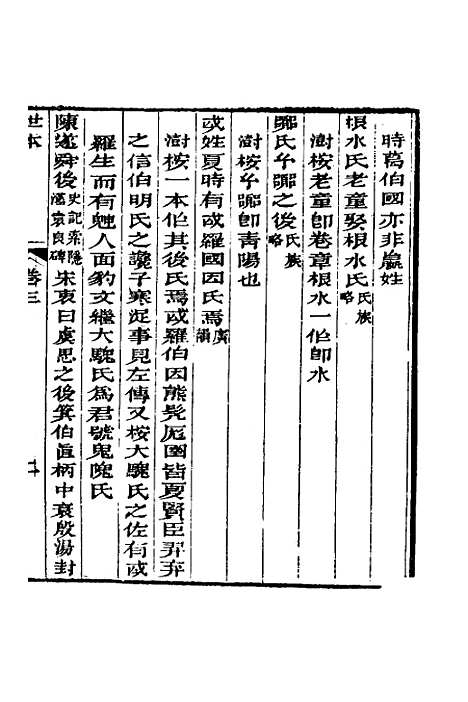 時葛伯國亦非嬴姓
根水氏老童娶根水氏氏族略
澍桉老童卽卷章根水一作卽水
鄡氏少鄡之後氏族略
澍桉少鄡卽青陽也
或姓夏時有或羅國因氏焉廣韻
澍桉一本作其後氏焉或羅伯因熊髡厖圉皆夏賢臣羿弃
之信伯明氏之讒子寒浞事見左傳又桉大騩氏之佐有或
羅生而有䰡人面豹文繼大騩氏爲君號鬼隗氏
陳遂舜後史記索隱漢袁良碑宋衷曰虞思之後箕伯直柄中衰殷湯封
世本
卷三